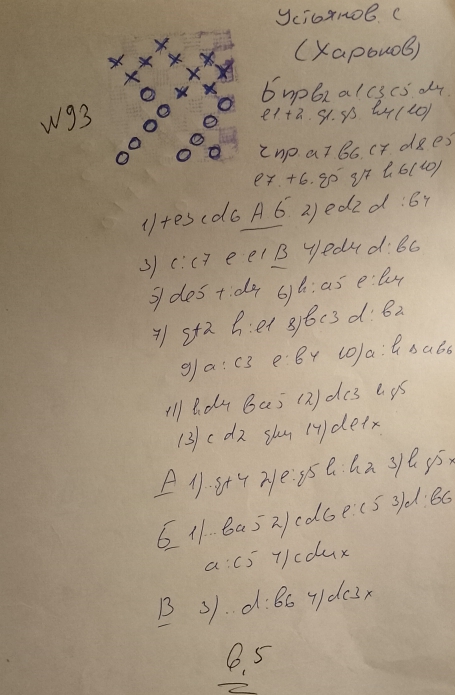 Устьянов С
(Харьков)
N93
б пр b2 a1 c3 c5 d4
e1 f2 g1 g3 h4 (10)
ч пр. a7 b6 c7 d8 e5
e7 f6 g5 g7 h6 (10)
1) fe3 cd6 А Б 2) ed2 d:b4
3) c:c7 e:e1 В 4) ed4 d:b6
5) de5 f:d4 6) h:a5 e:h4
7) gf2 h:e1 8) bc3 d:b2
9) a:c3 e:b4 10) a:h8 ab6
11) hd4 ba5 12) dc3 hg5
13) cd2 gh4 14) de1x
А 1)..gf4 2) e:g5 h:h2 3) hg5x
Б 1)..ba5 2) cd6 e:c5 3) d:b6
a:c5 4) cd4x
В 3)..d:b6 4) dc3x
6,5